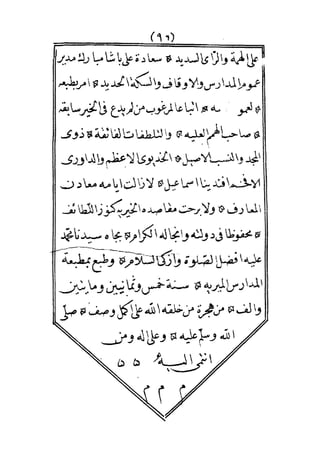 (٩٦)
على الهمة والرأى السديد * سعادة على باشا مبارك مدير
عموم المدارس والاوقاف والسكة الحديد * امر بطبعه
* لعمو مه * اتباعا لمرغوب من لم يدع فى الخير سابقه
* صاحب الهمم العليه * والتلطفات الفائقة * ذوى
المجد والنسب الاصيل * الخديوى الاعظم والداورى
الافخم افندينا اسماعيل * لازالت ايامه معادن
المعارف * ولا برحت مقاصده الخيريه كنوز اللطائف
* محفوظا فى دولته وانجاله الكرام * بجاه سيدنا محمد
عليه افضل الصلوة وازكى السلام * وطبع بمطبعة
المدارس الميريه * سنة خمس وثمانيين ومايتين
والف * من هجرة من خلقه الله على اكمل وصف * صلى
الله وسلم عليه * وعلى اله ومن
انتمى اليه
م م م